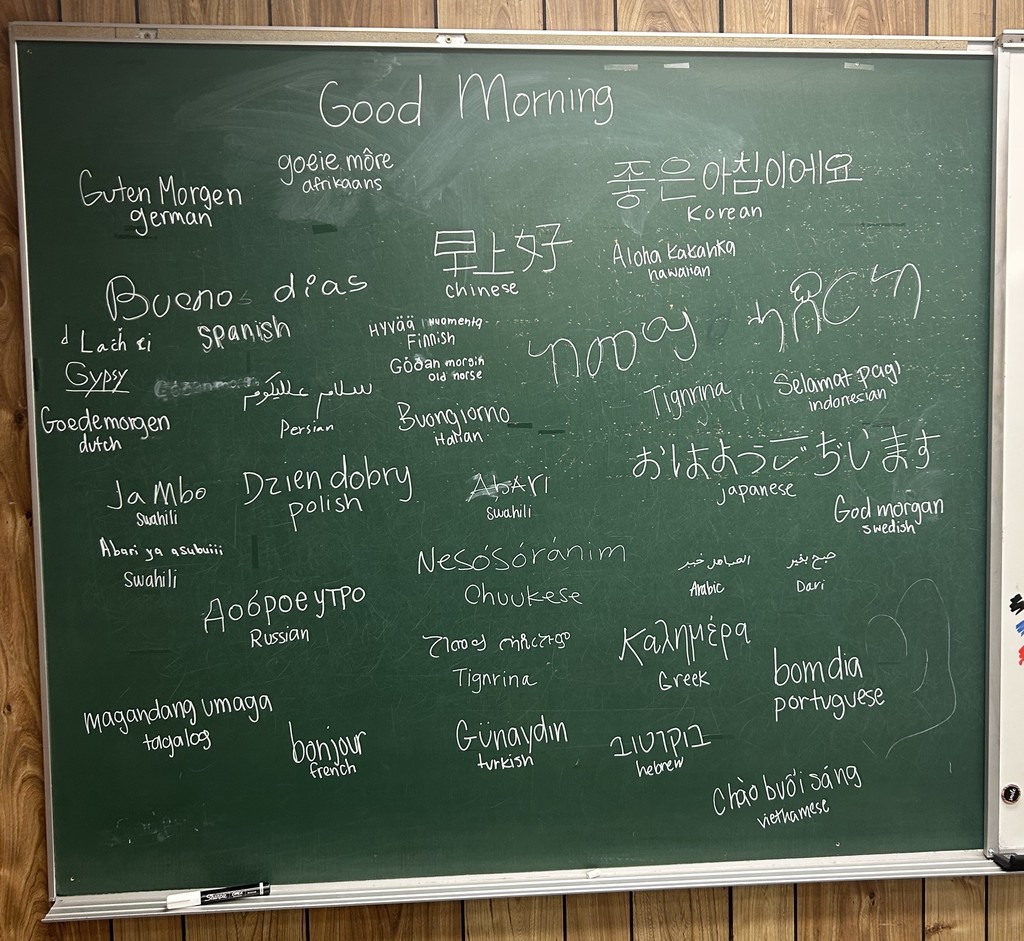 Good Morning
goeie môre
afrikaans
Guten Morgen
german
좋은 아침이에요
Korean
早上好
chinese
Aloha kakahka
hawaiian
Buenos dias
spanish
Hyvää
Finnish
Góðan morgin
old norse
Gypsy
Persian
Goedemorgen
dutch
Buongiorno
Italian
Tignrina
Selamat pagi
indonesian
おはようございます
japanese
Ja Mbo
Swahili
Dzien dobry
polish
AbAri
Swahili
God morgan
swedish
Abari ya asubuiii
Swahili
Nesósóránim
Chuukese
Arabic
صبح بخیر
Dari
Доброе утро
Russian
Tignrina
Καλημέρα
Greek
bom dia
portuguese
magandang umaga
tagalog
bonjour
french
Günaydın
turkish
בוקרטוב
hebrew
Chào buổi sáng
viethamese
Sharpie